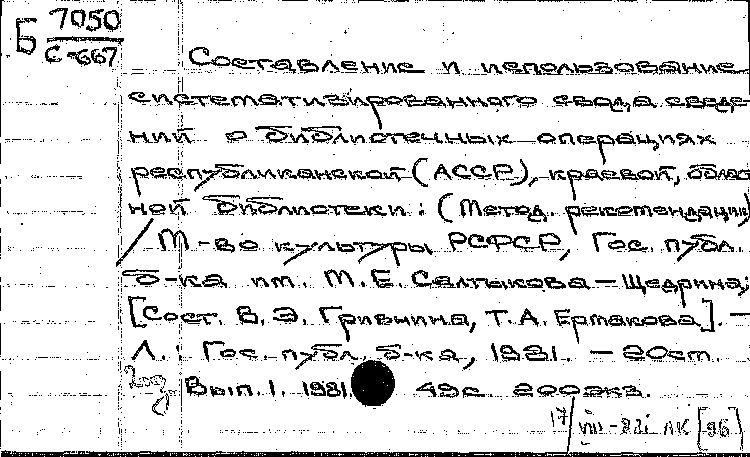 Б 7050
С-667
Составление и использование
систематизированного свода сведе
ний о библиотечных операциях
республиканской (АССР), краевой, област
ной библиотеки: (Метод. рекомендации)
/ М-во культуры РСФСР, Гос. публ.
б-ка им. М.Е. Салтыкова-Щедрина;
[Сост. В.Э. Гривнина, Т.А. Ермакова]. —
Л.: Гос. публ. б-ка, 1981. — 20см.
Вып. 1. 1981. 49с. 200экз.
17/VIII-82г ЛК [96]